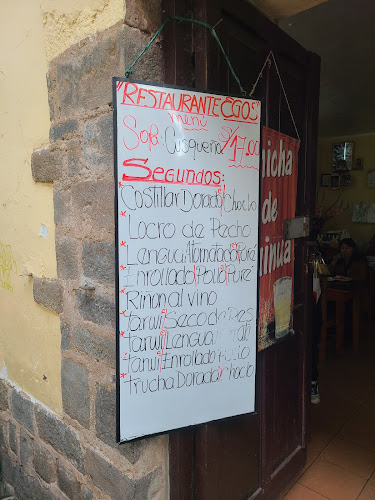 "RESTAURANTE EGOS"
menú
Sop. Cusqueña S/17.00
SEGUNDOS:
*Costillar Dorado/choclo
*Locro de Pecho
*Lengua Atomatada/Puré
*Enrollado/Pollo/Puré
*Riñon al vino
*Tarwi/Seco de Res
*Tarwi/Lengua
*Tarwi/Enrollado
*Trucha Dorada/choclo
chicha
de